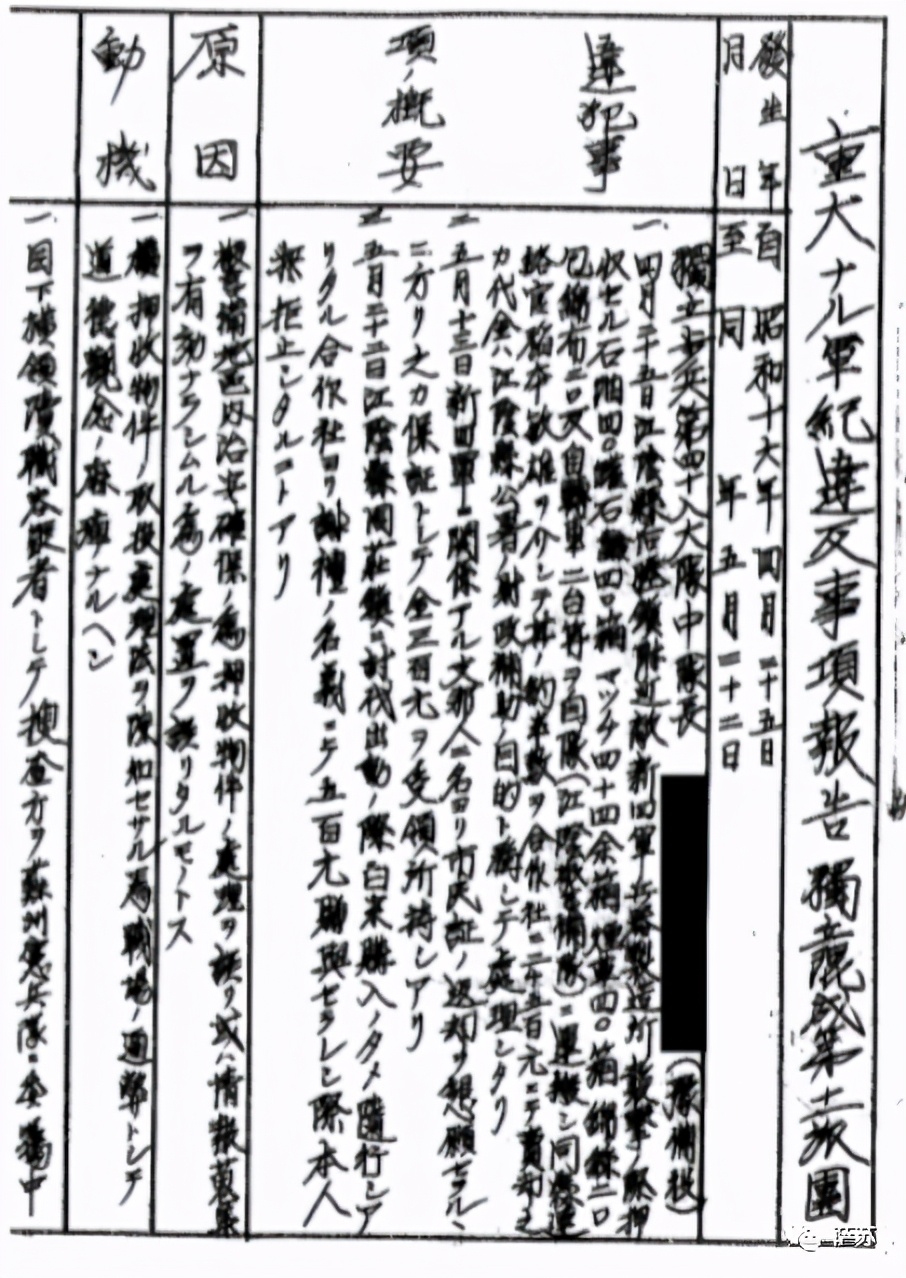 重大ナル軍紀違反事項報告 獨立混成第十二旅團
發生年月日
自 昭和十六年四月二十五日
至 同 年五月二十二日
違犯事項ノ概要
獨立歩兵第四十八大隊中隊長 (豫備役)
一、四月二十五日江陰縣后塍鎮附近敵新四軍兵器製造所襲撃ノ際押
収セル石油四〇罐石鹸四〇箱マッチ四十四余箱煙草四〇箱綿絲二〇
包綿布二〇又自轉車二台等ヲ自隊(江陰警備隊)ニ運搬シ同
ヲ介シテ其ノ約半数ヲ合作社ニ二千五百元ニテ賣却シ
カ代金ハ江陰縣公署ノ財政補助ノ目的ト稱シテ處理シタリ
二、五月十三日新四軍ニ関係アル支那人二名ヨリ市民証ノ返却ヲ懇願セラレ
之カ保証トシテ金三百元ヲ受領所持シアリ
三、五月二十二日江陰縣周莊鎮ニ討伐出動ノ際白米購入ノタメ隨行シア
リタル合作社ヨリ謝禮ノ名義ニテ五百元贈與セラレシ際本人
拒止シタルコトアリ
原因
一、警備地區内治安確保ノ為押收物件ノ處理ヲ誤リ或ハ情報蒐集
ヲ有効ナラシムル為ノ處置ヲ誤リタルモノトス
動機
一、押收物件ノ取扱處理法ヲ知セサル為戰場ノ通弊トシテ
道徳觀念ノ麻痺ナルヘシ
一、目下横領瀆職容疑者トシテ捜査方ヲ蘇州憲兵隊ニ委囑中